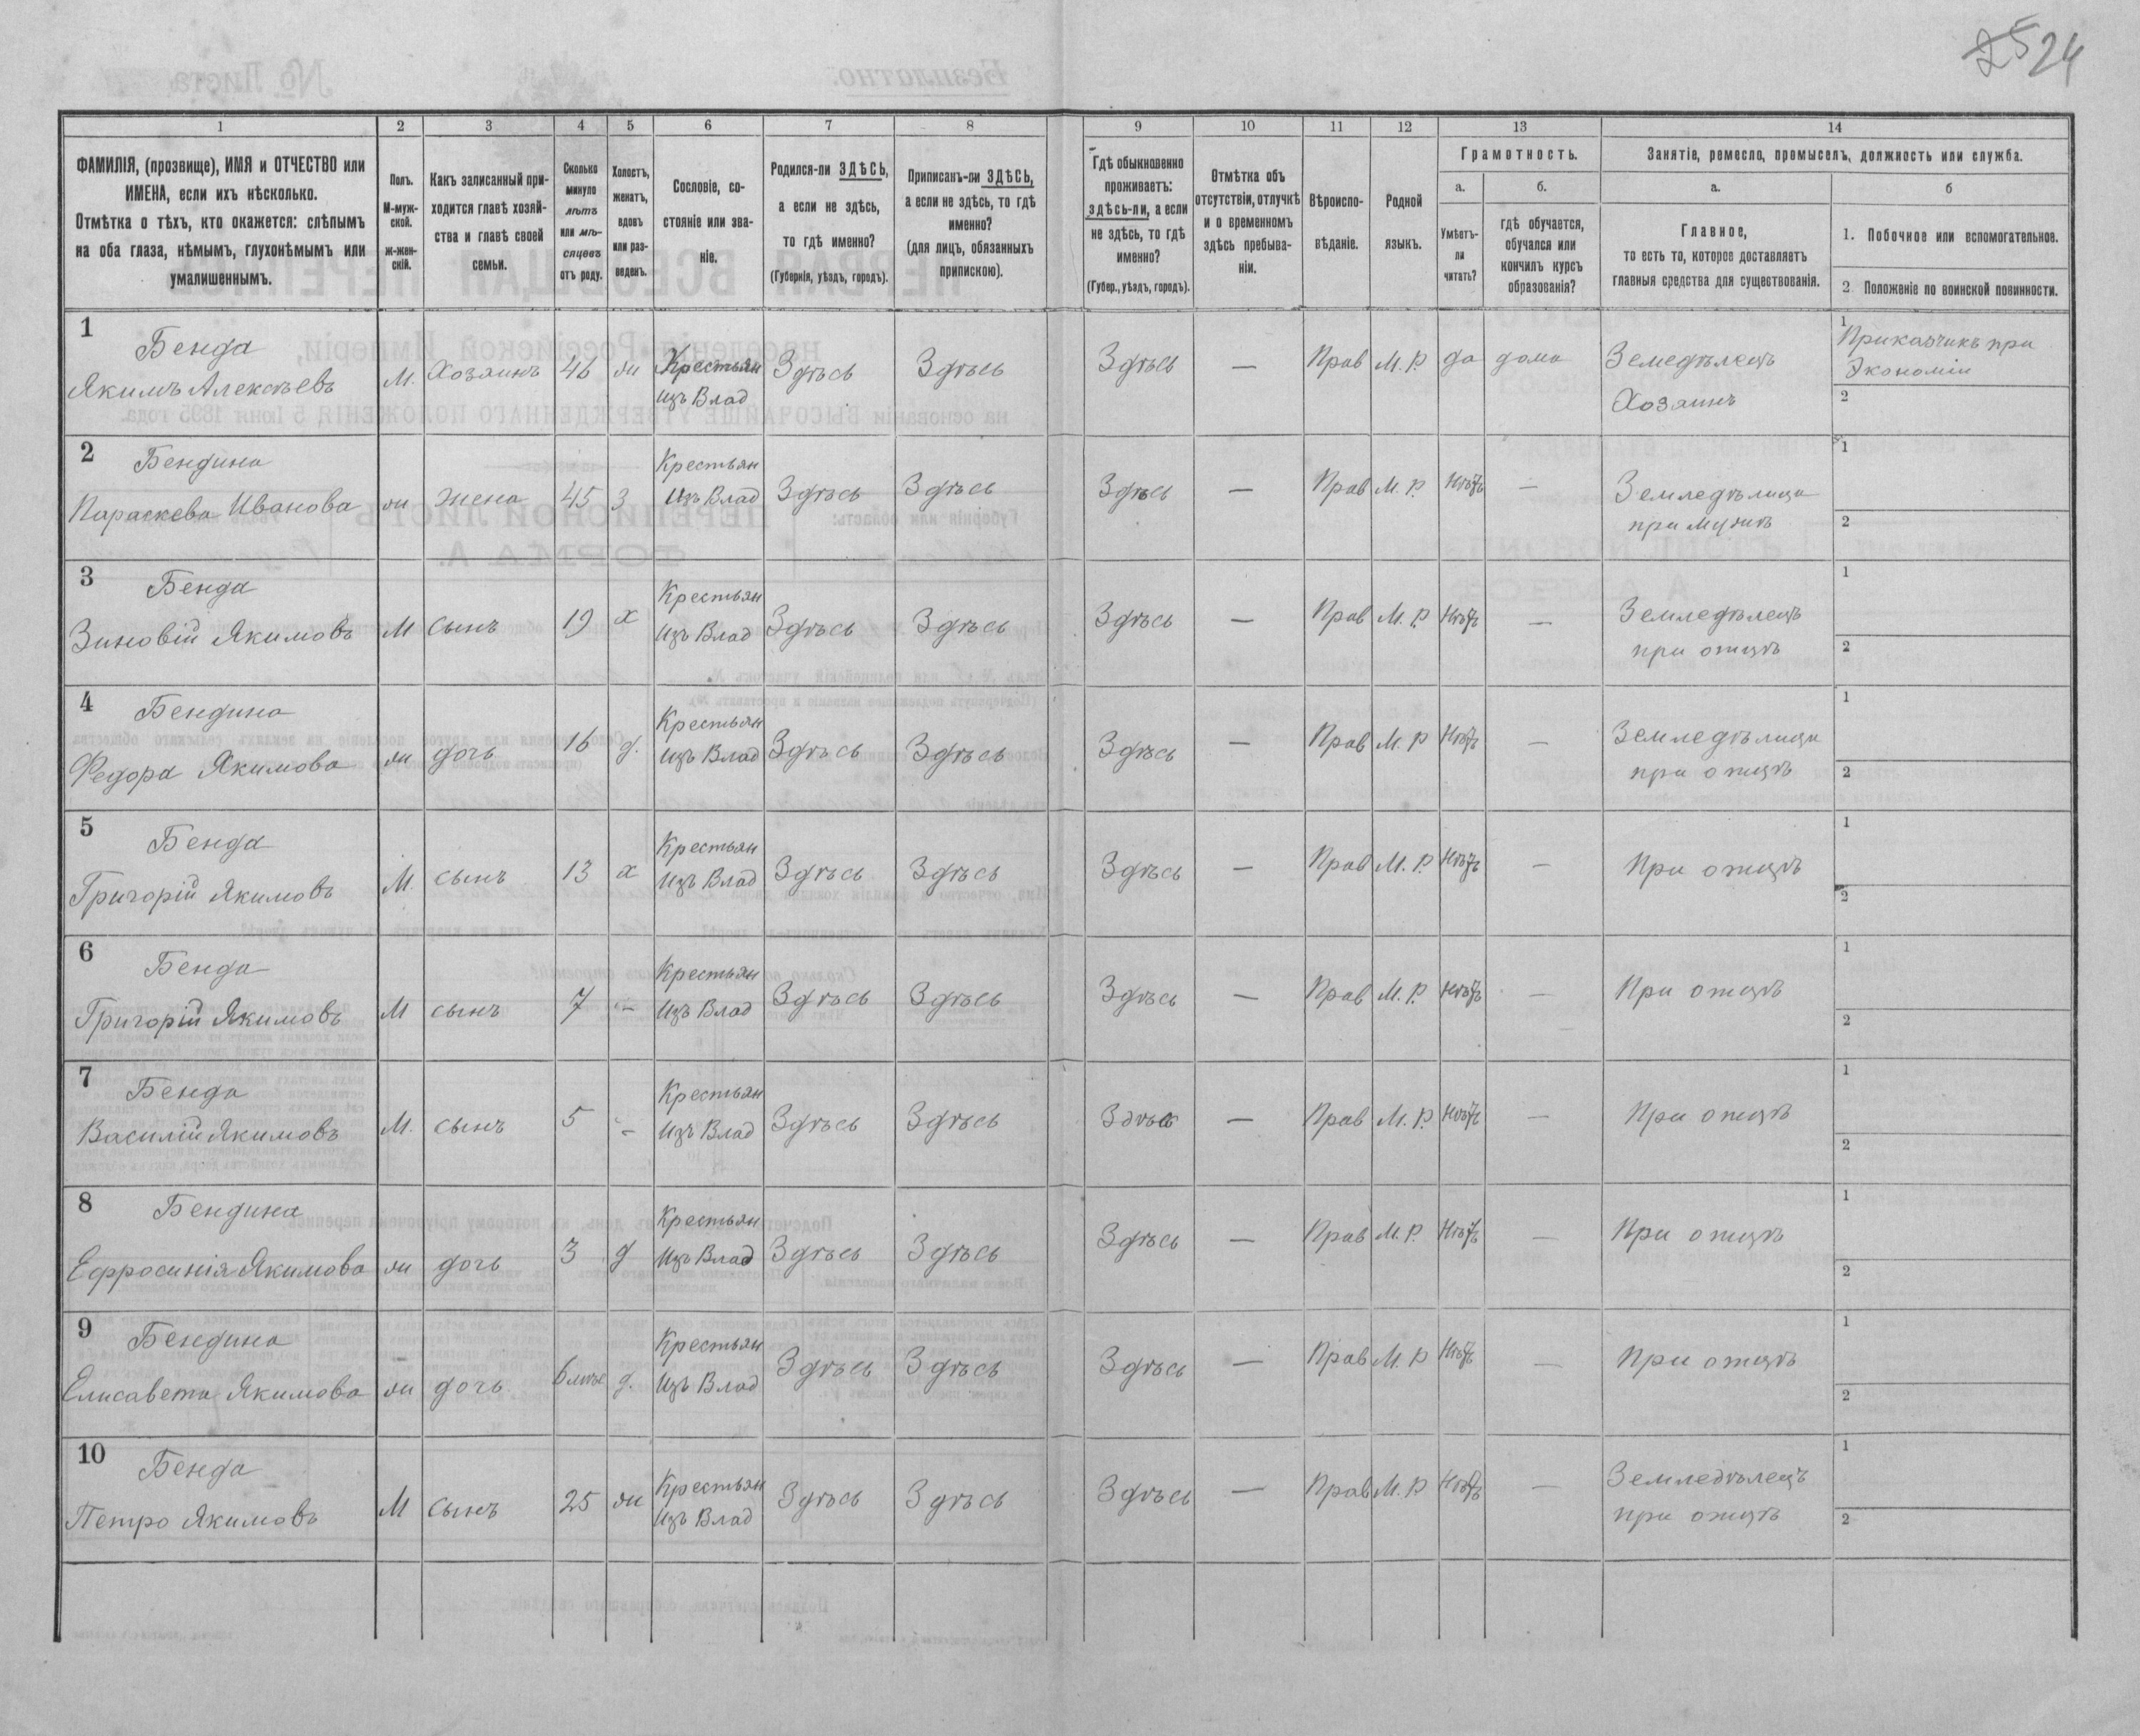 25 24
1 2 3 4 5 6 7 8 9 10 11 12 13 14
ФАМИЛІЯ, (прозвище), ИМЯ и ОТЧЕСТВО или
ИМЕНА, если ихъ нѣсколько.
Отмѣтка о тѣхъ, кто окажется: слѣпымъ
на оба глаза, нѣмымъ, глухонѣмымъ или
умалишеннымъ.
Полъ.
М-муж-
ской.
ж-жен-
скій.
Какъ записанный при-
ходится главѣ хозяй-
ства и главѣ своей
семьи.
Сколько
минуло
лѣтъ
или мѣ-
сяцевъ
отъ роду.
Холостъ,
женатъ,
вдовъ
или раз-
веденъ.
Сословіе, со-
стояніе или зва-
ніе.
Родился-ли ЗДѢСЬ,
а если не здѣсь,
то гдѣ именно?
(Губернія, уѣздъ, городъ).
Приписанъ-ли ЗДѢСЬ,
а если не здѣсь, то гдѣ
именно?
(для лицъ, обязанныхъ
припискою).
Гдѣ обыкновенно
проживаетъ:
здѣсь-ли, а если
не здѣсь, то гдѣ
именно?
(Губер., уѣздъ, городъ).
Отмѣтка объ
отсутствіи, отлучкѣ
и о временномъ
здѣсь пребыва-
ніи.
Вѣроиспо-
вѣданіе.
Родной
языкъ.
Грамотность.
а.
Умѣетъ-
ли
читать?
б.
гдѣ обучается,
обучался или
кончилъ курсъ
образованія?
Занятіе, ремесло, промыселъ, должность или служба.
а.
Главное,
то есть то, которое доставляетъ
главныя средства для существованія.
б
1. Побочное или вспомогательное.
2 Положеніе по воинской повинности.
1
Бенда
Якимъ Алексѣевъ
М. Хозяинъ 46 ж
Крестьян
изъ Влад
Здѣсь Здѣсь Здѣсь — Прав М. Р. да дома
Земедѣлецъ
Хозяинъ
1
Приказчикъ при
Экономіи
2
2
Бендина
Параскева Иванова
ж жена 45 З
Крестьян
Изъ Влад
Здѣсь Здѣсь Здѣсь — Прав М. Р. Нѣтъ —
Земледѣлица
при мужѣ
1
2
3
Бенда
Зиновій Якимовъ
М сынъ 19 х
Крестьян
Изъ Влад
Здѣсь Здѣсь Здѣсь — Прав М. Р. Нѣтъ —
Земледѣлецъ
при отцѣ
1
2
4
Бендина
Федора Якимова
ж дочь 16 д.
Крестьян
Изъ Влад
Здѣсь Здѣсь Здѣсь — Прав М. Р Нѣтъ —
Земледѣлица
при отцѣ
1
2
5
Бенда
Григорій Якимовъ
М. сынъ 13 х
Крестьян
Изъ Влад
Здѣсь Здѣсь Здѣсь — Прав М. Р. Нѣтъ —
При отцѣ
1
2
6
Бенда
Григорій Якимовъ
М сынъ 7 —
Крестьян
Изъ Влад
Здѣсь Здѣсь Здѣсь — Прав М. Р. Нѣтъ —
При отцѣ
1
2
7
Бенда
Василій Якимовъ
М. сынъ 5 —
Крестьян
Изъ Влад
Здѣсь Здѣсь Здѣсь — Прав М. Р. Нѣтъ —
При отцѣ
1
2
8
Бендина
Ефросинія Якимова
ж дочь 3 д
Крестьян
Изъ Влад
Здѣсь Здѣсь Здѣсь — Прав М. Р. Нѣтъ —
При отцѣ
1
2
9
Бендина
Елисавета Якимова
ж дочь 6 д.
Крестьян
Изъ Влад
Здѣсь Здѣсь Здѣсь — Прав М. Р Нѣтъ —
При отцѣ
1
2
10
Бенда
Петро Якимовъ
М сынъ 25 ж
Крестьян
Изъ Влад
Здѣсь Здѣсь Здѣсь — Прав М. Р Нѣтъ —
Земледѣлецъ
при отцѣ
1
2